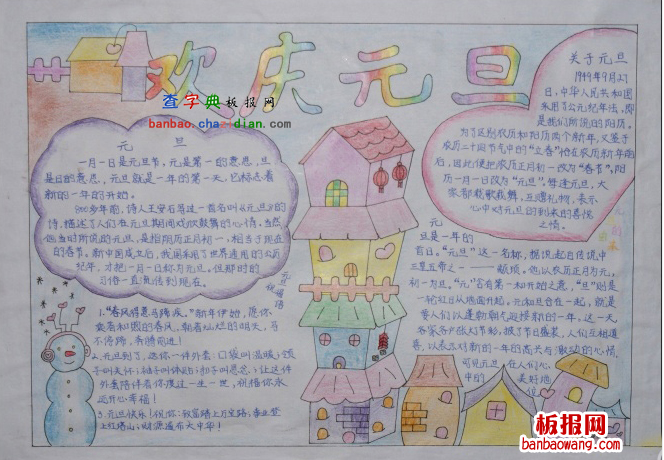 欢庆元旦
查字典板报网
banbao.chazidian.com
元 旦
一月一日是元旦节,元是第一的意思,旦
是日的意思,元旦就是一年的第一天,它标志着
新的一年的开始。
800多年前,诗人王安石写过一首名叫《元旦》的
诗,描述了人们在元旦期间欢欣鼓舞的心情,当然
他当时所说的元旦,是指阴历正月初一,相当于现在
的春节。新中国成立后,我国采用了世界通用的公历
纪年,才把一月一日称为元旦,但那时的
习俗一直流传到现在。
关于元旦
1949年9月27
日,中华人民共和国
采用了公元纪年法,即
是我们所说的阳历。
为了区别农历和阳历两个新年,又鉴于
农历二十四节气中的“立春”恰在农历新年前
后,因此便把农历正月初一改为“春节”,阳
历一月一日改为“元旦”。每逢元旦,大
家都载歌载舞,互赠礼物,表示
心中对元旦的到来的喜悦
之情。
元旦祝福语
1、“春风得意马蹄疾”新年伊始,愿你
乘着和煦的春风,朝着灿烂的明天,马
不停蹄,奔腾前进!
2、元旦到了,送你一件外套:口袋叫温暖;领
子叫关怀;袖子叫体贴;扣子叫思念;让这件
外套陪伴着你度过一生一世,祝福你永
远开心幸福!
3、元旦快乐!祝你:致富踏上万宝路;事业登
上红塔山;财源遍布大中华!
元
旦是一年的
首日。“元旦”这一名称,据说起自传说中
三皇五帝之一——颛顼。他以农历正月为元,
初一为旦。“元”含有第一和开始之意,“旦”则是
一轮红日从地面升起。元和旦合在一起,就是
要人们以蓬勃朝气迎接新的一年。这一天,
客家各户张灯节彩,披了节日盛装,人们互相道
喜,以表示对新的一年的高兴与激动的心情,
可见元旦在人们心
中的美好地
位
板报网
www.banbaowang.com